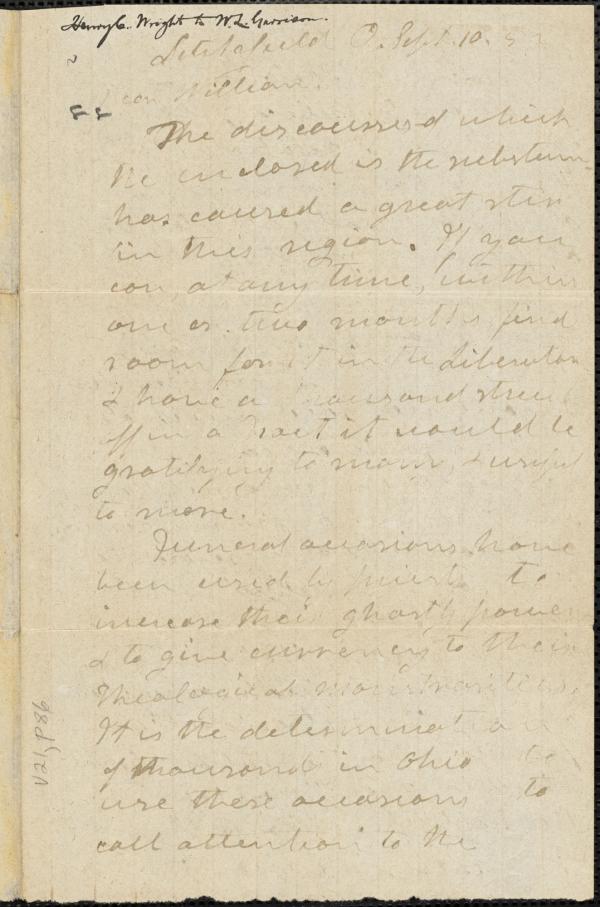 Henry C. Wright to W. L. Garrison.
Litchfield O. Sept. 10.
Dear William.
The discourse of which
the enclosed is the substance
has caused a great stir
in this region. If you
can, at any time, within
one or two months find
room for it in the Liberator
& have a thousand struck
off in a Tract it would be
gratifying to many, & useful
to more.
Funeral occasions have
been used by priests to
increase their ghostly power
& to give currency to their
Theological monstrosities.
It is the determination
of thousands in Ohio to
use these occasions to
call attention to the